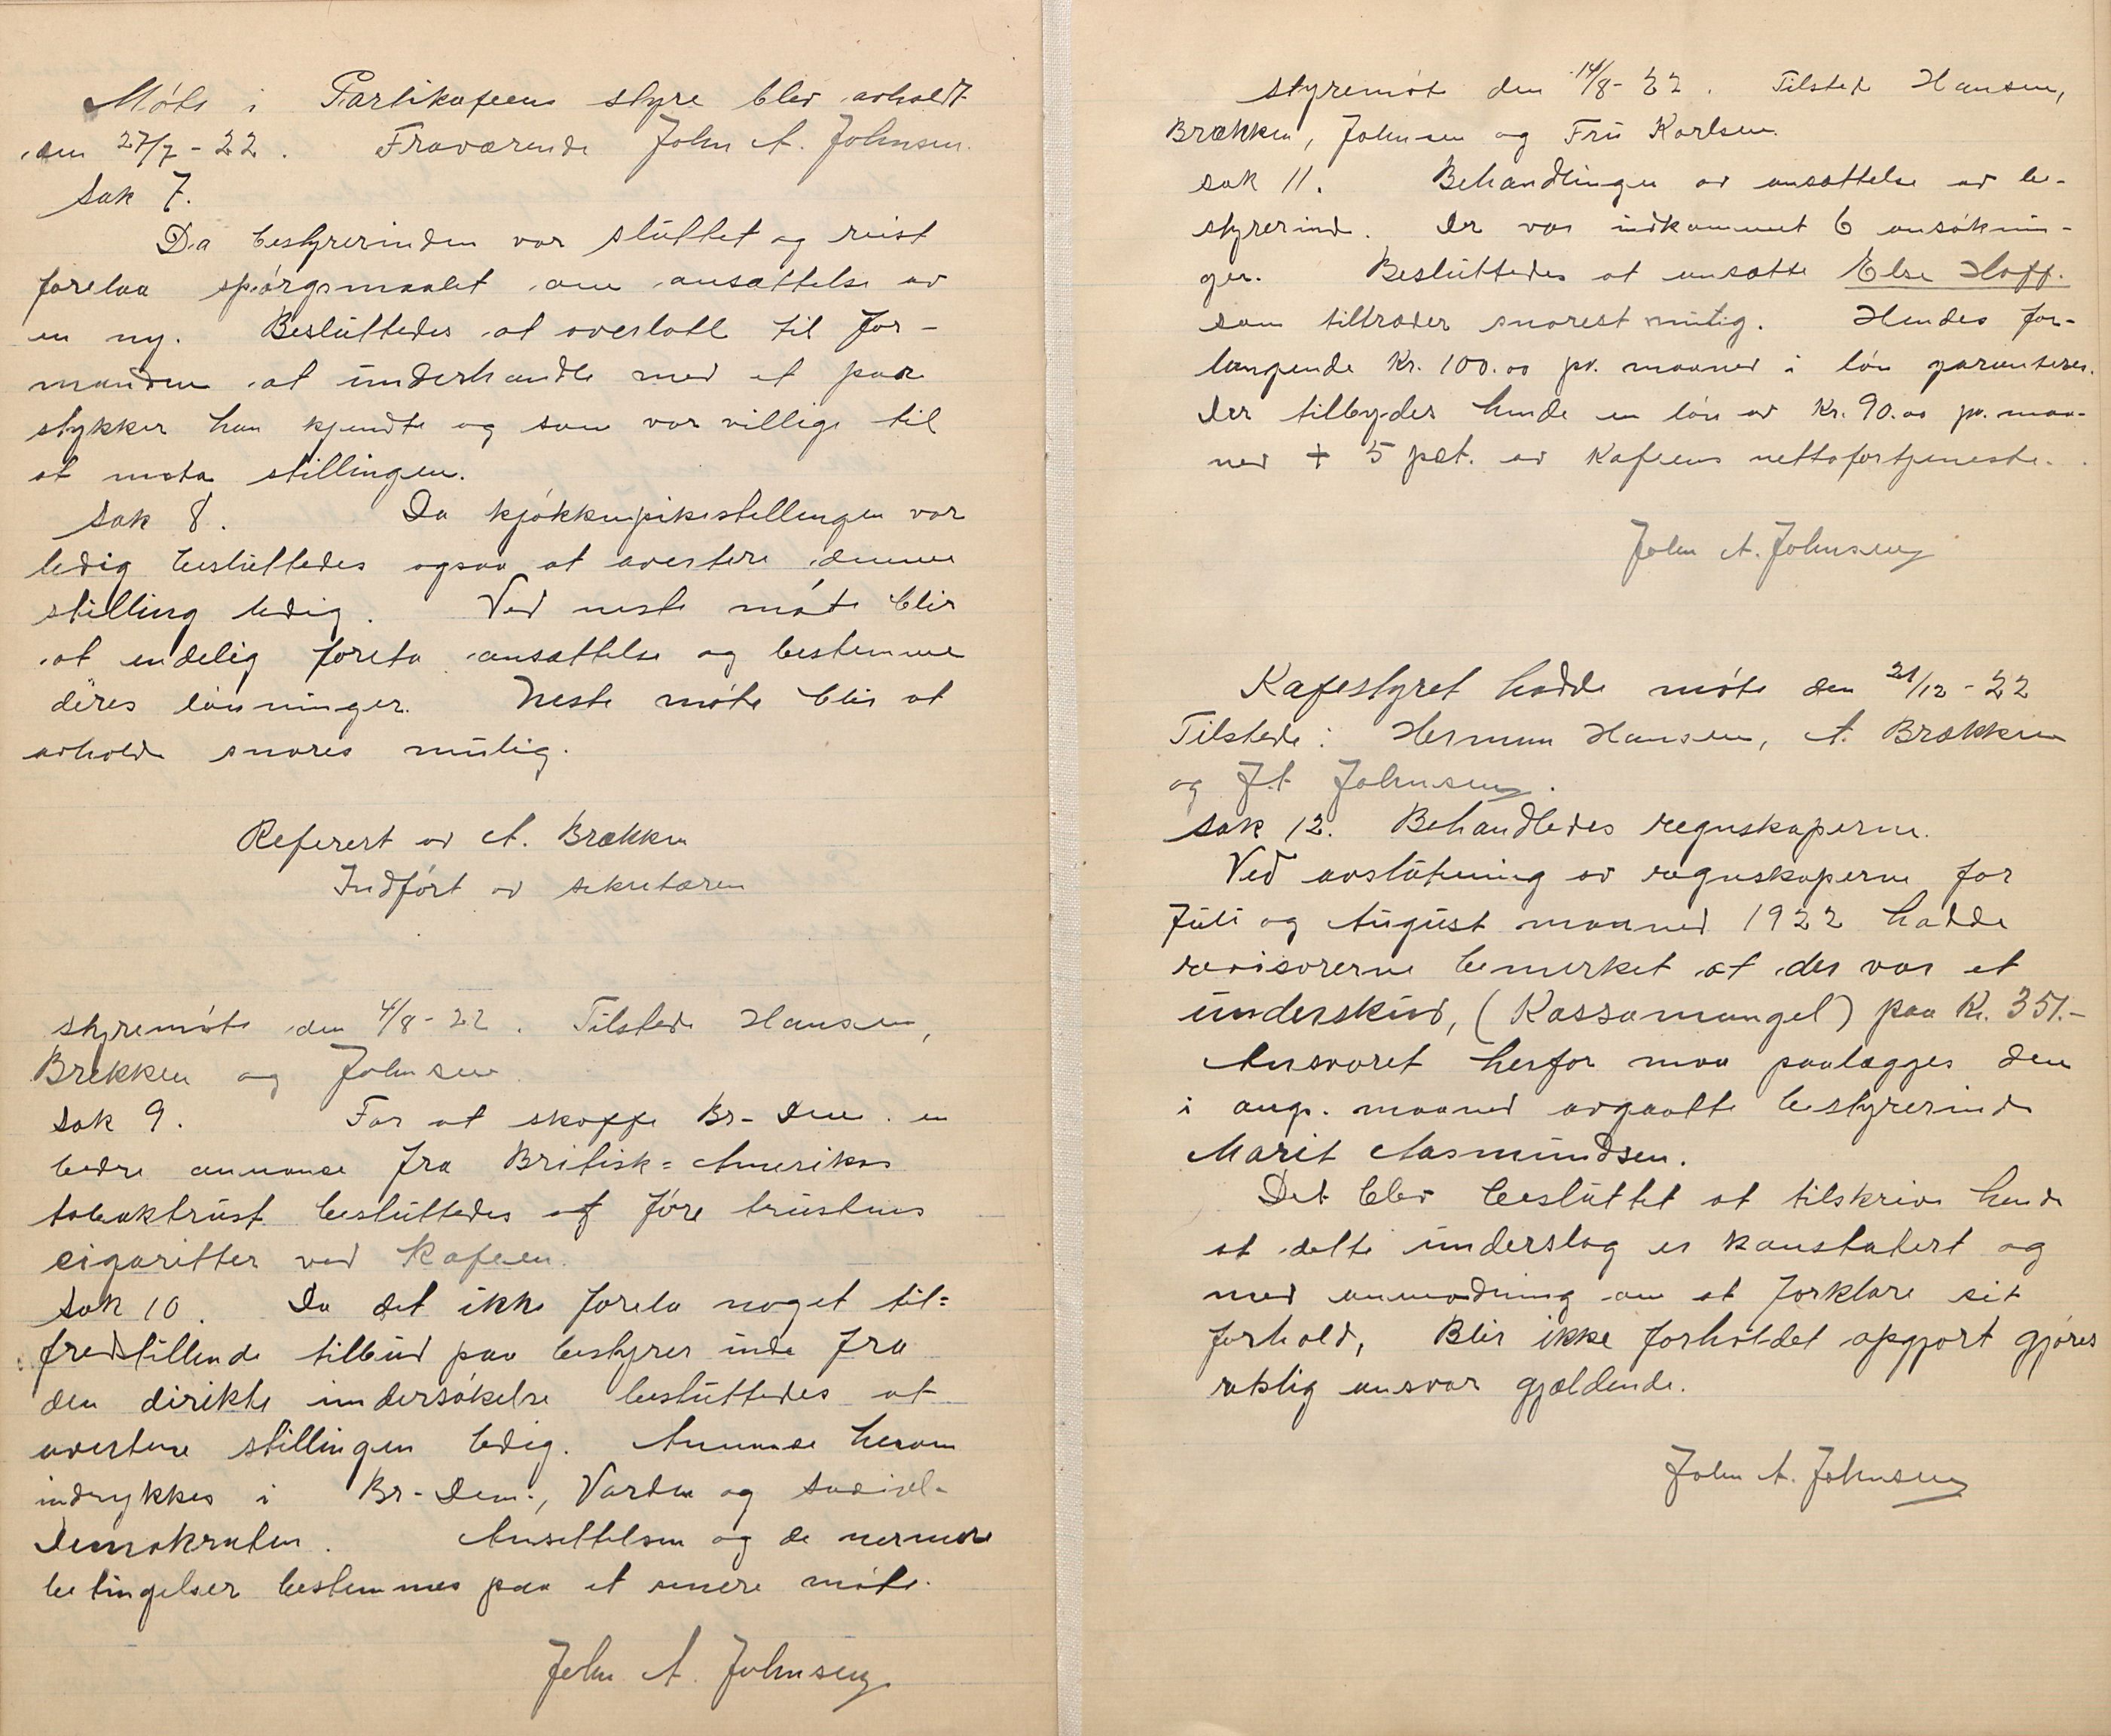 Møte i Partikafeens styre blev avholdt
den 27/7 - 22. Fraværende John A. Johnsen.
Sak 7.
Da bestyrerinden var sluttet og reist
forelaa spørgsmaalet om ansættelse av
en ny. Besluttedes at overlate til for-
manden at underhandle med et paar
stykker han kjendte og som var villige til
at mota stillingen.
Sak 8. Da kjøkkenpikestillingen var
ledig besluttedes ogsaa at avertere denne
stilling ledig. Ved neste møte blir
at endelig foreta ansættelse og bestemme
deres lønninger. Neste møte blir at
avholde snares mulig.
Referert av A. Brækken
Indført av sekretæren
Styremøte den 4/8 - 22. Tilstede Hansen,
Brekken og Johnsen.
Sak 9. For at skaffe Br-Dem. en
bedre annonse fra Britisk=Amerikas
tobaktrust besluttedes at føre trustens
cigaritter ved Kafeen.
Sak 10. Da det ikke forela noget til=
fredstillende tilbud paa bestyrerinde fra
den dirikte undersøkelse besluttedes at
avertere stillingen ledig. Annonse herom
indrykkes i Br-Dem., Varden og Social-
Demokraten. Ansettelsen og de nermere
betingelser bestemmes paa et senere møte.
John A. Johnsen
Styremøte den 14/8 - 22. Tilstede Hansen,
Brækken, Johnsen og Fru Karlsen.
Sak 11. Behandlingen av ansættelse av be-
styrerinde. Der var indkommet 6 ansøknin-
ger. Besluttedes at ansætte Else Hoff.
som tiltræder snarest mulig. Hendes for-
langende Kr. 100.00 pr. maaned i løn garanteres.
Der tilbydes hende en løn av Kr. 90.00 pr. maa-
ned + 5 pct. av Kafeens nettofortjeneste.
John A. Johnsen
Kafestyret hadde møte den 21/12 - 22
Tilstede: Herman Hansen, A. Brækken
og J.A. Johnsen.
Sak 12. Behandledes regnskaperne.
Ved avslutning av regnskaperne for
Juli og August maaned 1922 hadde
revisorerne bemerket at der var et
underskud, (Kassamangel) paa Kr. 351.-
Ansvaret herfor maa paalægges den
i aug. maaned avgaatte bestyrerinde
Marit Aasmundsen.
Det blev besluttet at tilskrive hende
at dette underslag er konstatert og
med anmodning om at forklare sit
forhold, Blir ikke forholdet opgjort gjøres
retslig ansvar gjældende.
John A. Johnsen